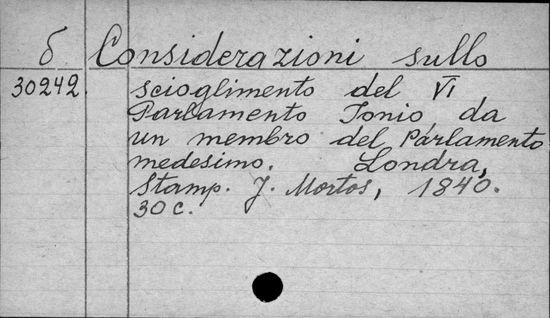 δ Considerazioni sullo
30242. scioglimento del VI
Parlamento Ionio da
un membro del Parlamento
medesimo. Londra,
Stamp. J. Mortos, 1840.
30 c.